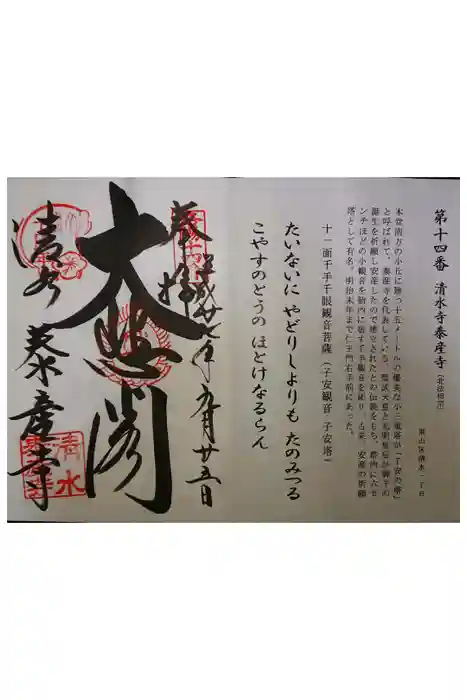 第十四番 清水寺泰産寺（北法相宗）
東山区清水一丁目
本堂南方の小丘に建つ十五メートルの優美な小三重塔が「子安の塔」
と呼ばれて、泰産寺を代表している。聖武天皇と光明皇后が御子の
誕生を祈願し安産したので建立されたとの伝説をもち、塔内に六セ
ンチほどの小観音を胎内に宿す千手観音を祀り、古来、安産の祈願
塔として有名。明治末年まで仁王門右手前にあった。
十一面千手千眼観音菩薩（子安観音 子安塔）
たいないに やどりしよりも たのみつる
こやすのとうの ほとけなるらん
奉拝 平成廿七年 六月廿五日
大悲閣
清水 泰産寺